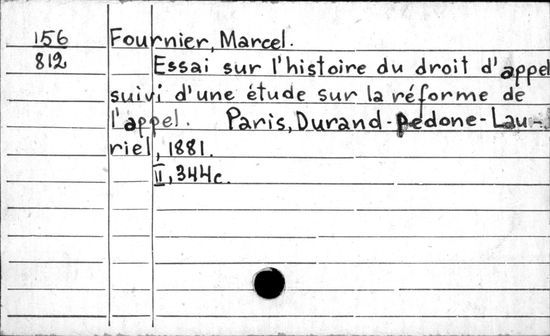 156 Fournier, Marcel.
812 Essai sur l'histoire du droit d'appel
suivi d'une étude sur la réforme de
l'appel. Paris, Durand-pedone-Lau-
riel, 1881.
II, 344c.